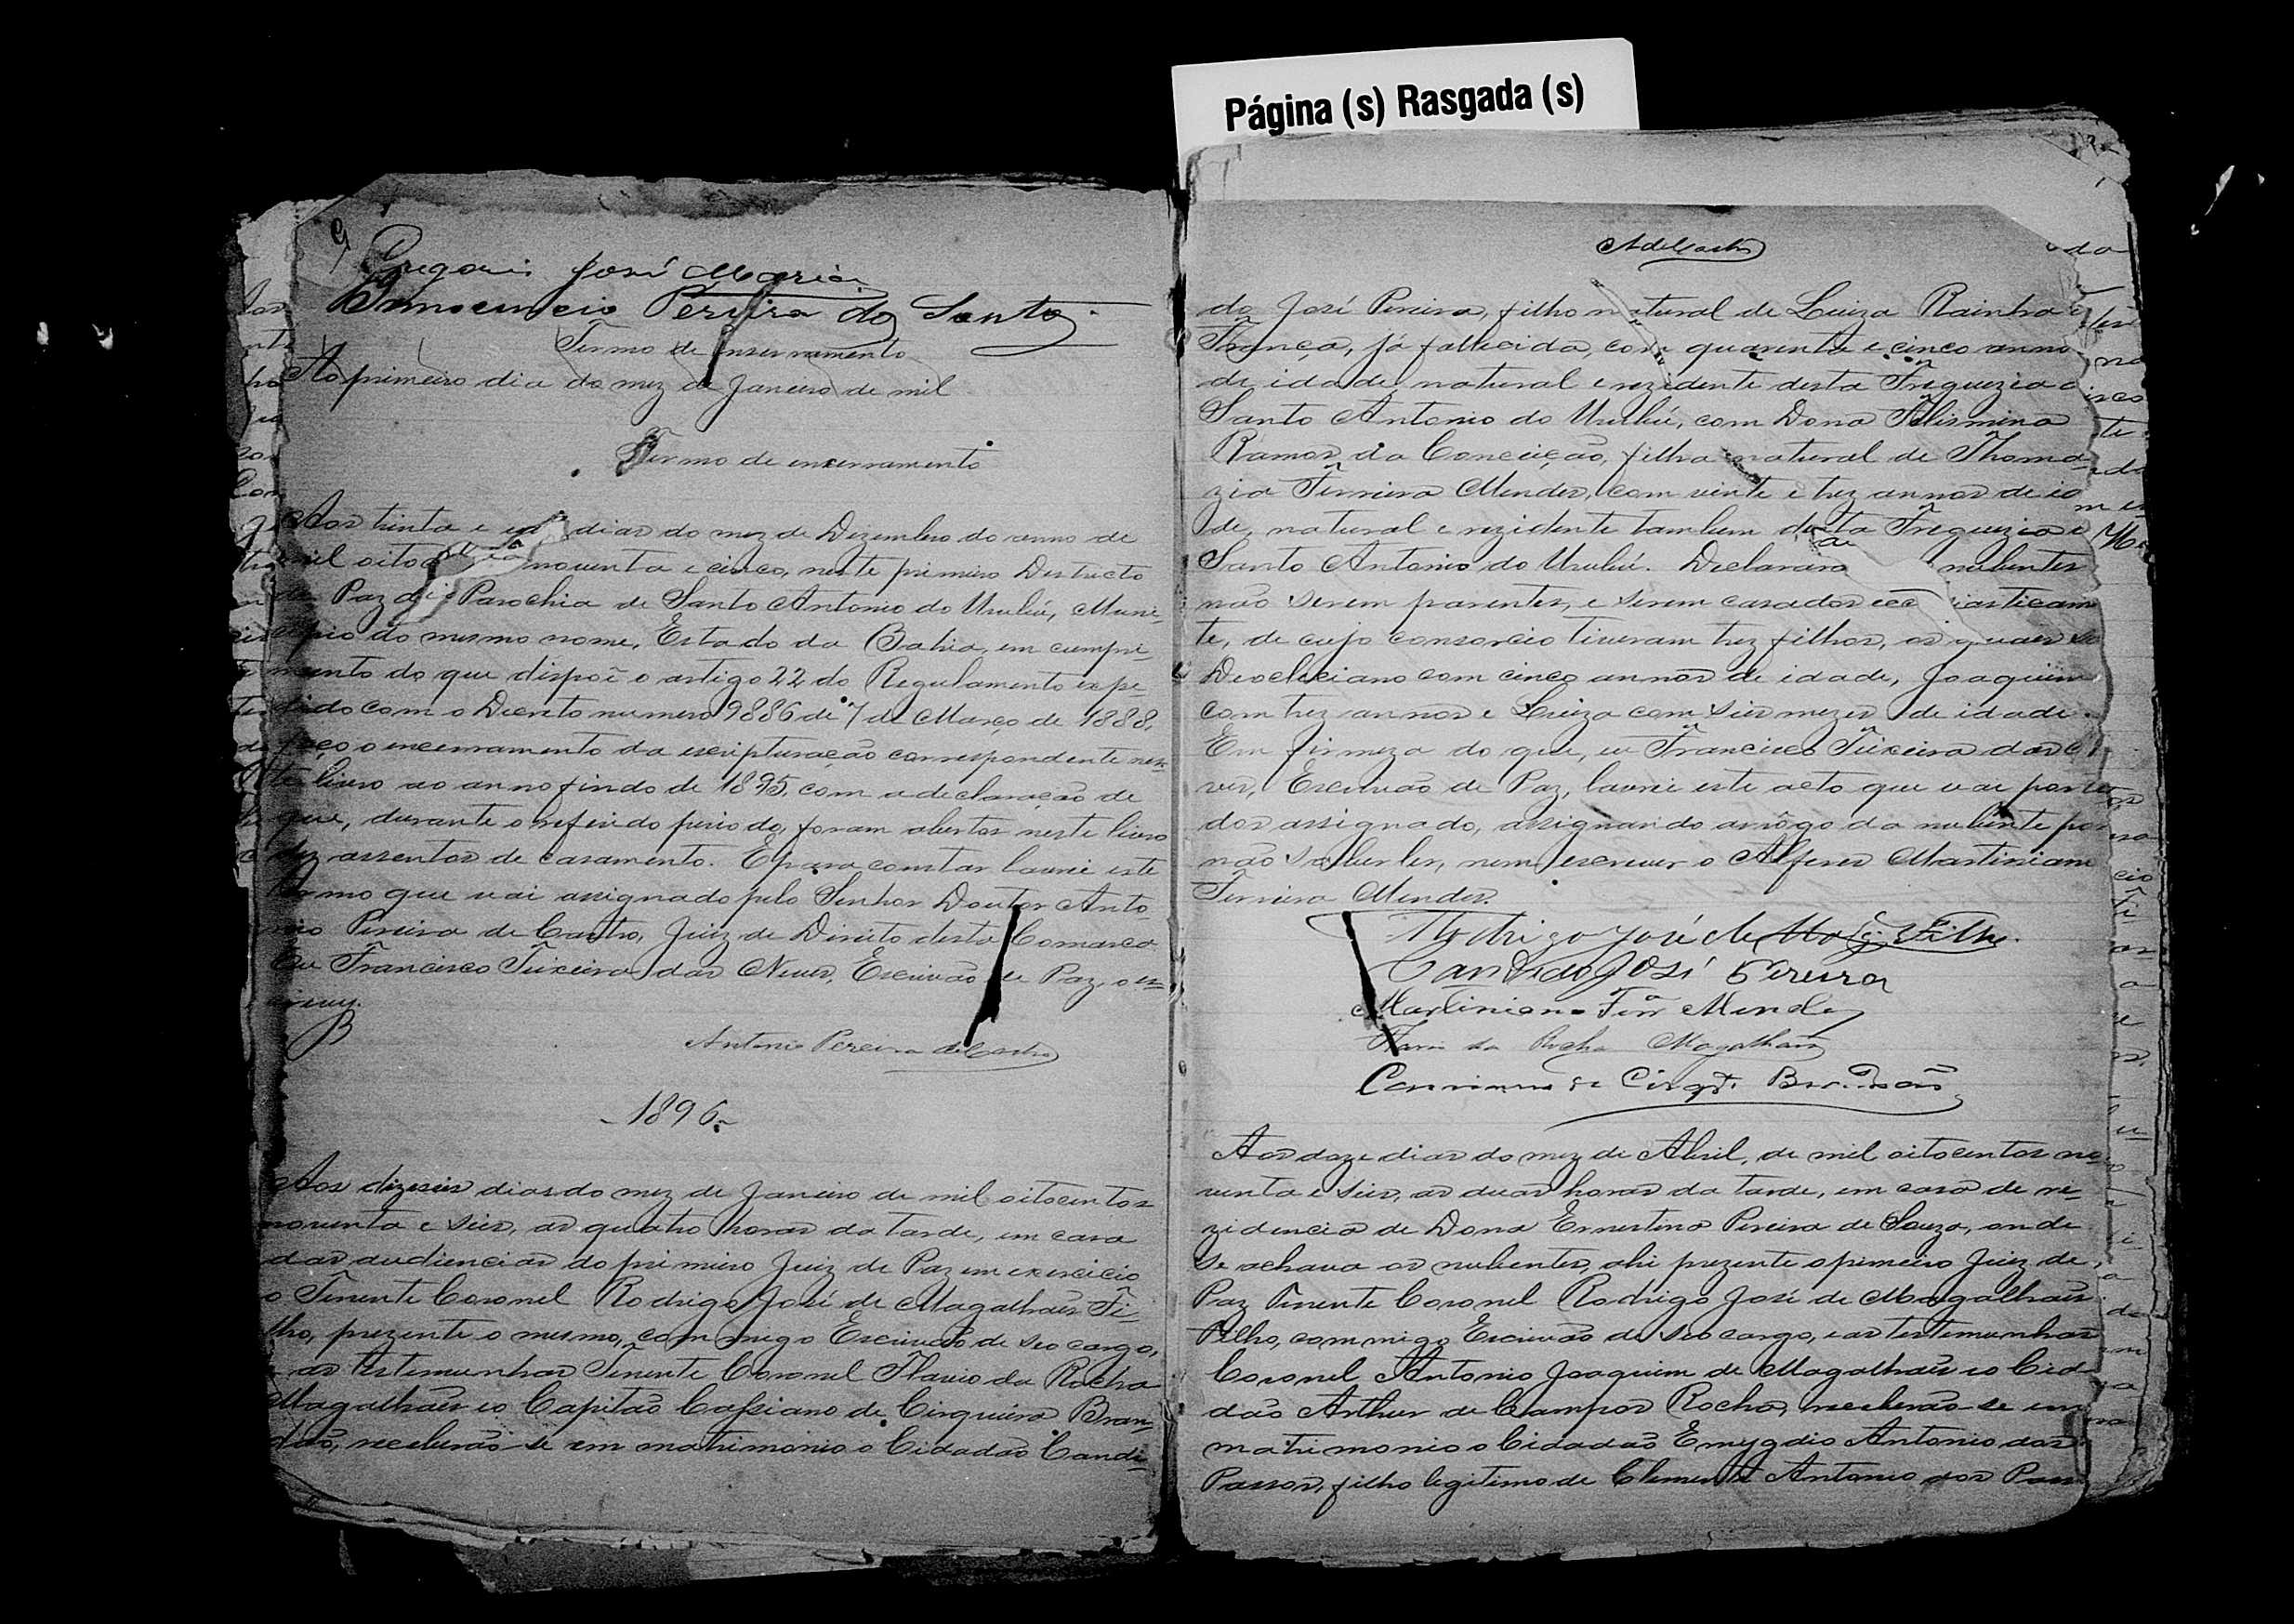 Página (s) Rasgada (s)
Gregorio José Maria
Innocencio Pereira do Santos
Termo de inserramento
Ao primeiro dia do mez de Janeiro de mil
Termo de encerramento
Aos trinta e um dias do mez de Dezembro do anno de
mil oito noventa e cinco, neste primeiro Destricto
de Paz da Parochia de Santo Antonio do Urubú, Muni-
cipio do mesmo nome, Estado da Bahia, em cumpri-
mento do que dispoẽ o artigo 22 do Regulamento expe-
dido com o Decreto numero 9886 de 7 de Março de 1888,
faço o encerramento da escripturação correspondente nes-
te livro ao anno findo de 1895, com a declaração de
que, durante o referido periodo, foram abertos neste livro
dez assentos de casamento. E para constar lavrei este
termo que vai assignado pelo Senhor Doutor Anto-
nio Pereira de Castro, Juiz de Direito desta Comarca
Eu Francisco Teixeira das Neves, Escrivão de Paz, o es-
crevy.
Antonio Pereira de Castro
- 1896 -
Aos dizeseis dias do mez de Janeiro de mil oitocentos
noventa e seis, as quatro horas da tarde, em casa
das audiencias do primeiro Juiz de Paz em exercicio
o Tenente Coronel Rodrigo José de Magalhães Fi-
lho, prezente o mesmo, commigo Escrivão de seo cargo,
e as testemunhas Tenente Coronel Flavio da Rocha
Magalhães e o Capitão Cassiano de Cirqueira Bran-
dão, receberão-se em matrimonio o Cidadão Candi-
AdeCastro
do José Pereira, filho natural de Luiza Rainha de
França, já fallecida, com quarenta e cinco anno
de idade, natural e rezidente desta Freguezia de
Santo Antonio do Urubú, com Dona Felismina
Ramos da Conceição, filha natural de Thoma-
zia Ferreira Mendes, com vinte e trez annos de ida
de, natural e rezidente tambem desta Freguezia de
Santo Antonio do Urubú. Declarara nubentes
não serem parentes, e serem casados ecc iasticam
te, de cujo consorcio tiveram trez filhos, os quaes
Deocleciano com cinco annos de idade, Joaquim
com trez annos e Luiza com seis mezes de idade.
Em firmeza do que, eu Francisco Teixeira das
ves, Escrivão de Paz, lavrei este acto que vai por
dos assignado, assignando a rôgo da nubente por
não saber ler, nem escrever o Alferes Martinian
Ferreira Mendes.
Rodrigo José de Mag.es Filho.
Candido José Pereira
Martiniano Ferrª Mendes
Flavio da Rocha Magalhães
Cassiano de Cirqª Brandão
Aos doze dias do mez de Abril, de mil oitocentos no-
venta e seis, as duas horas da tarde, em casa de re-
zidencia de Dona Ernestina Pereira de Souza, onde
se achava os nubentes, ahi prezente o primeiro Juiz de
Paz Tenente Coronel Rodrigo José de Magalhães
Filho, commigo Escrivão de seo cargo, e as testemunhas
Coronel Antonio Joaquim de Magalhães e o Cida
dão Arthur de Campos Rocha, receberão-se em
matrimonio o Cidadão Emygdio Antonio dos
Passos, filho legitimo de Clemente Antonio dos Pas